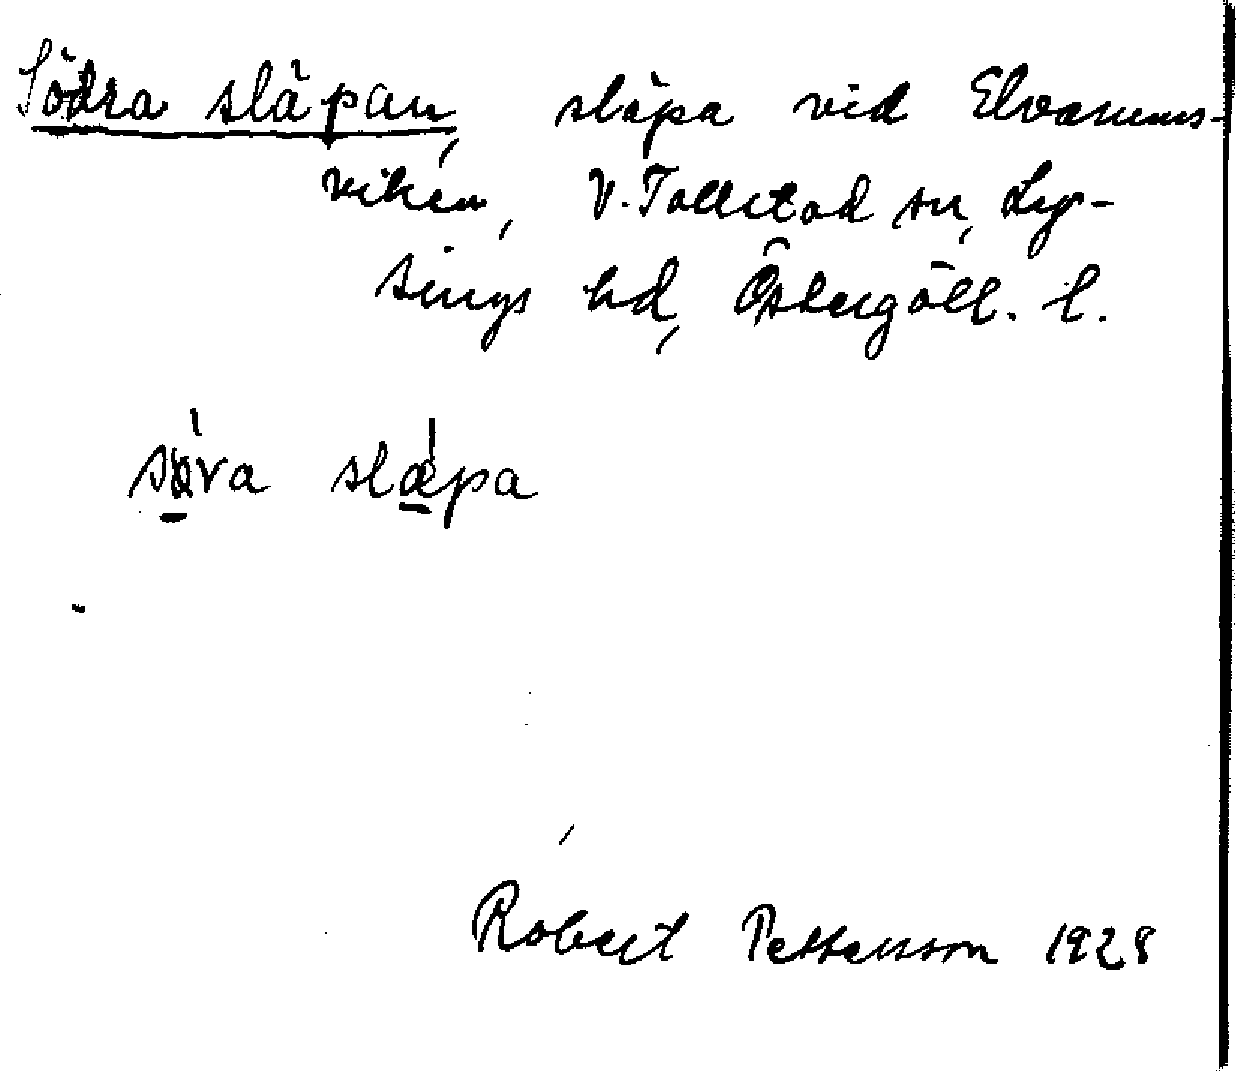 Södra släpan, släpa vid Elvarums-
viken, V. Tollstad sn, Ly-
sings hd, Östergötl. l.
söva släpa
Robert Pettersson 1928